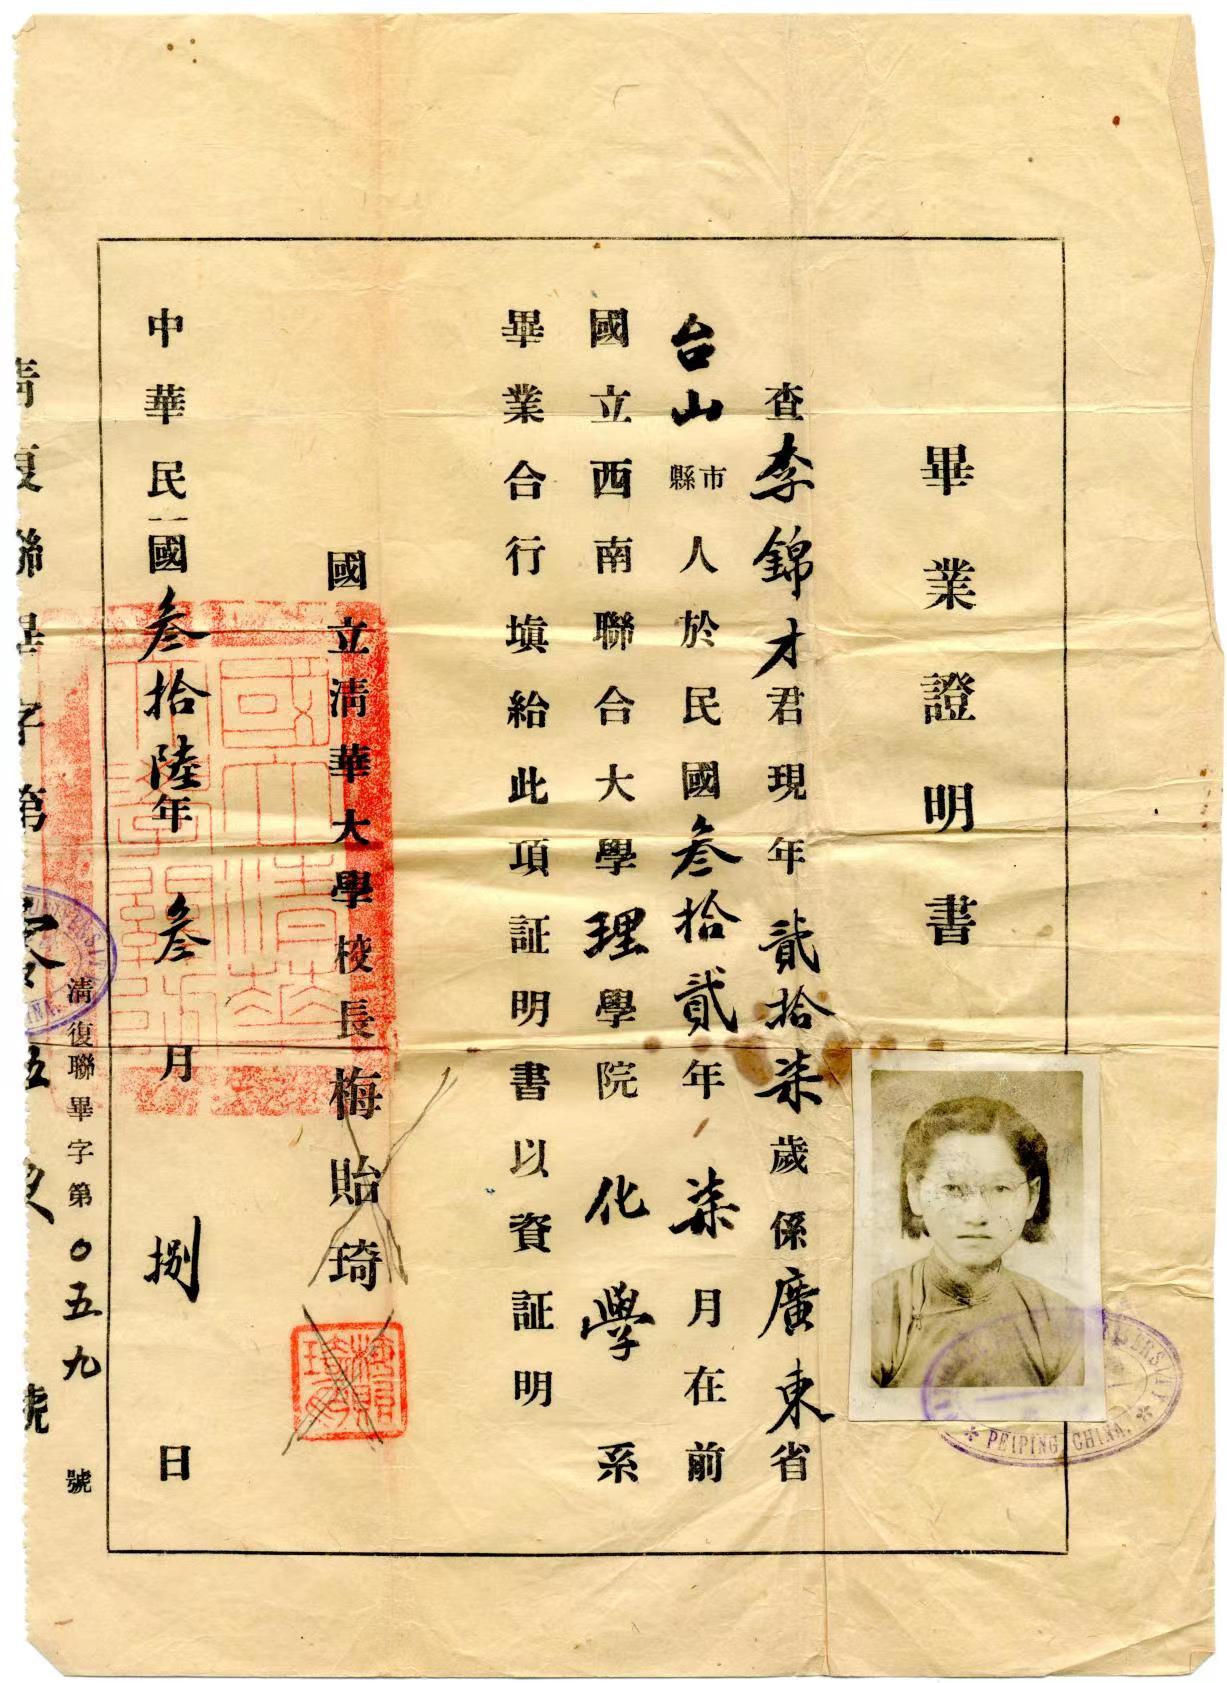 畢業證明書
查李錦才君現年貳拾柒歲係廣東省
台山市縣人於民國叁拾貳年柒月在前
國立西南聯合大學理學院化學系
畢業合行塡給此項証明書以資証明
國立清華大學校長梅貽琦
中華民國叁拾陸年叁月捌日
清復聯畢字第〇五九號
清復聯畢字第零伍玖號
PEIPING CHINA.